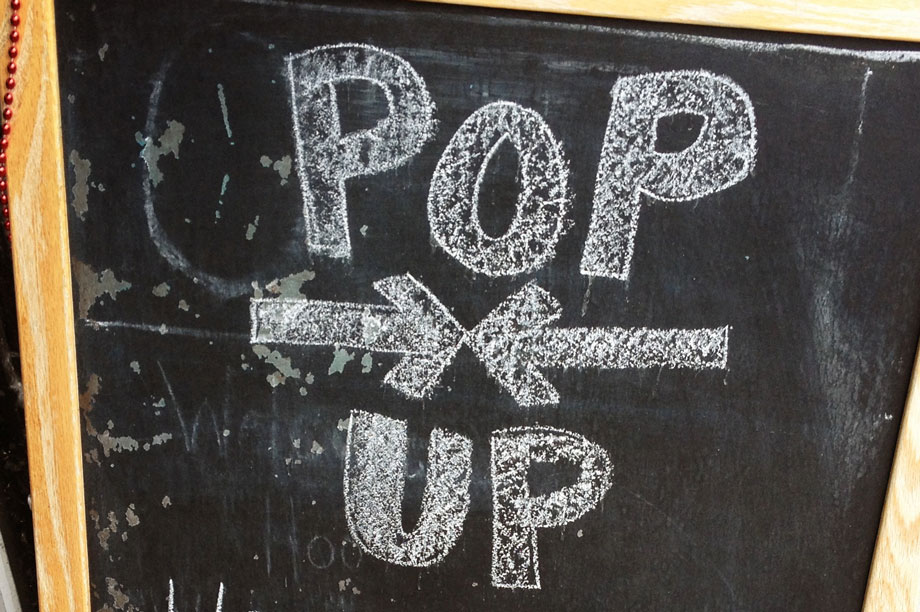 POP
UP